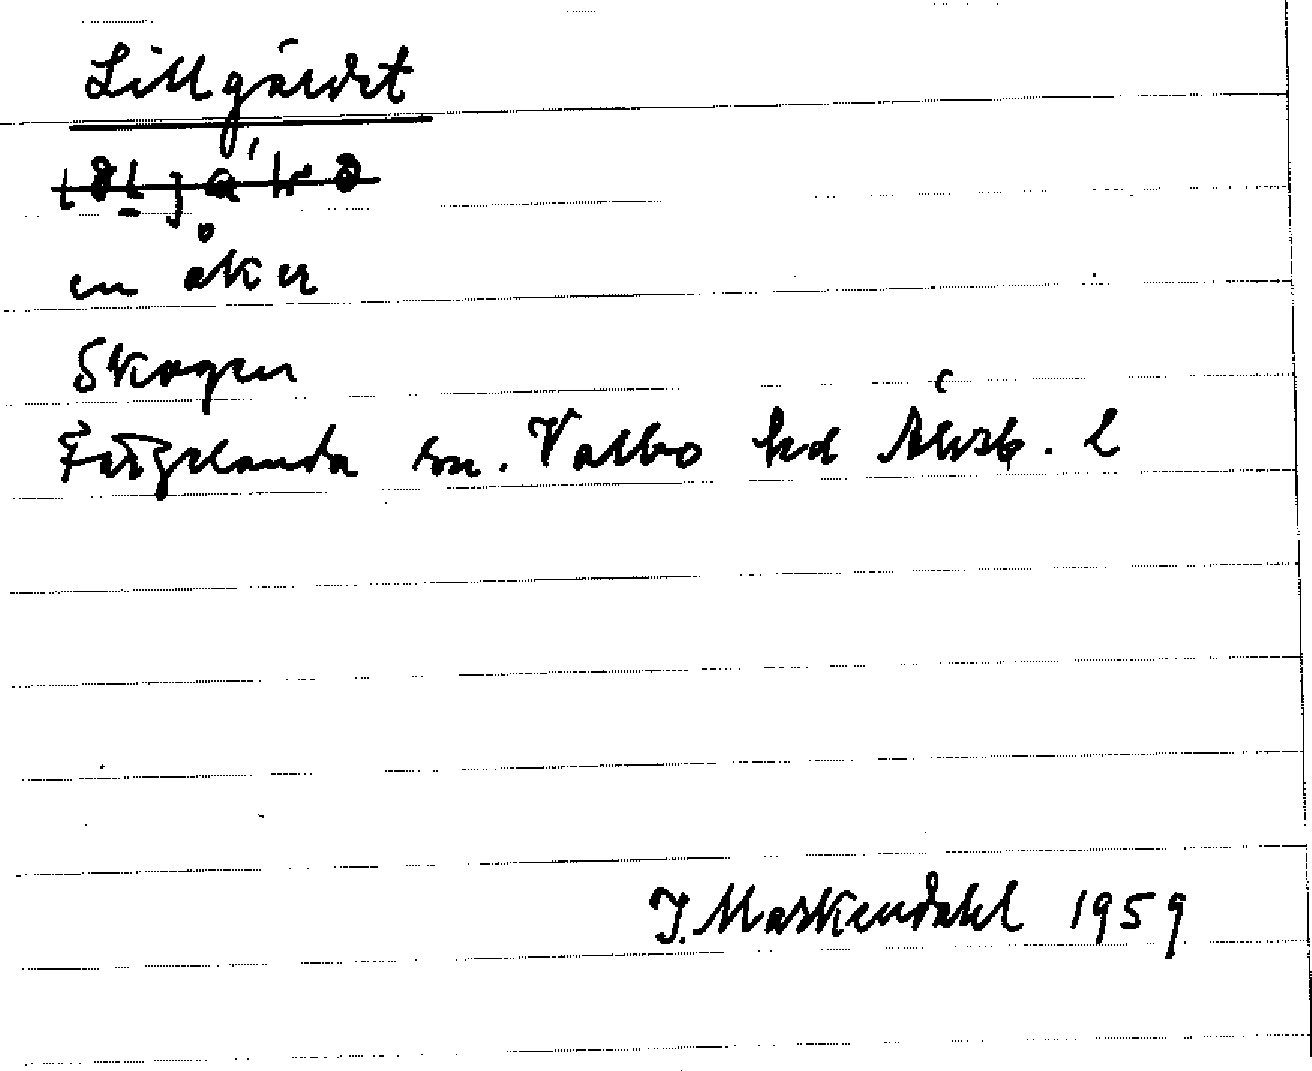 Lillgärdet
en åker
Skogen
Färgelanda sn. Valbo hd Älvsb. l
J. Maskendahl 1959